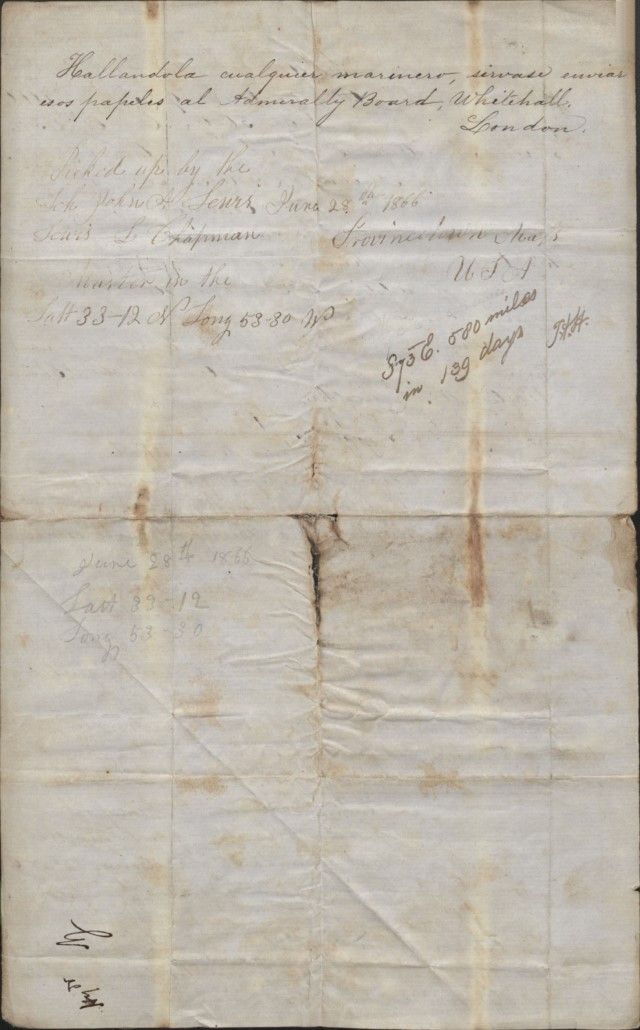 Hallandola cualquier marinero, sirvase enviar
esos papeles al Admiralty Board, Whitehall,
London.
Picked up by the
Sch John A Lewis June 28th 1866
Lewis L Chapman Provincetown Mass
Master in the U S A
Latt 33-12 N Long 53-30 W
S 75 E. 580 miles
in 139 days
June 28th 1866
Latt 33-12
Long 53-30